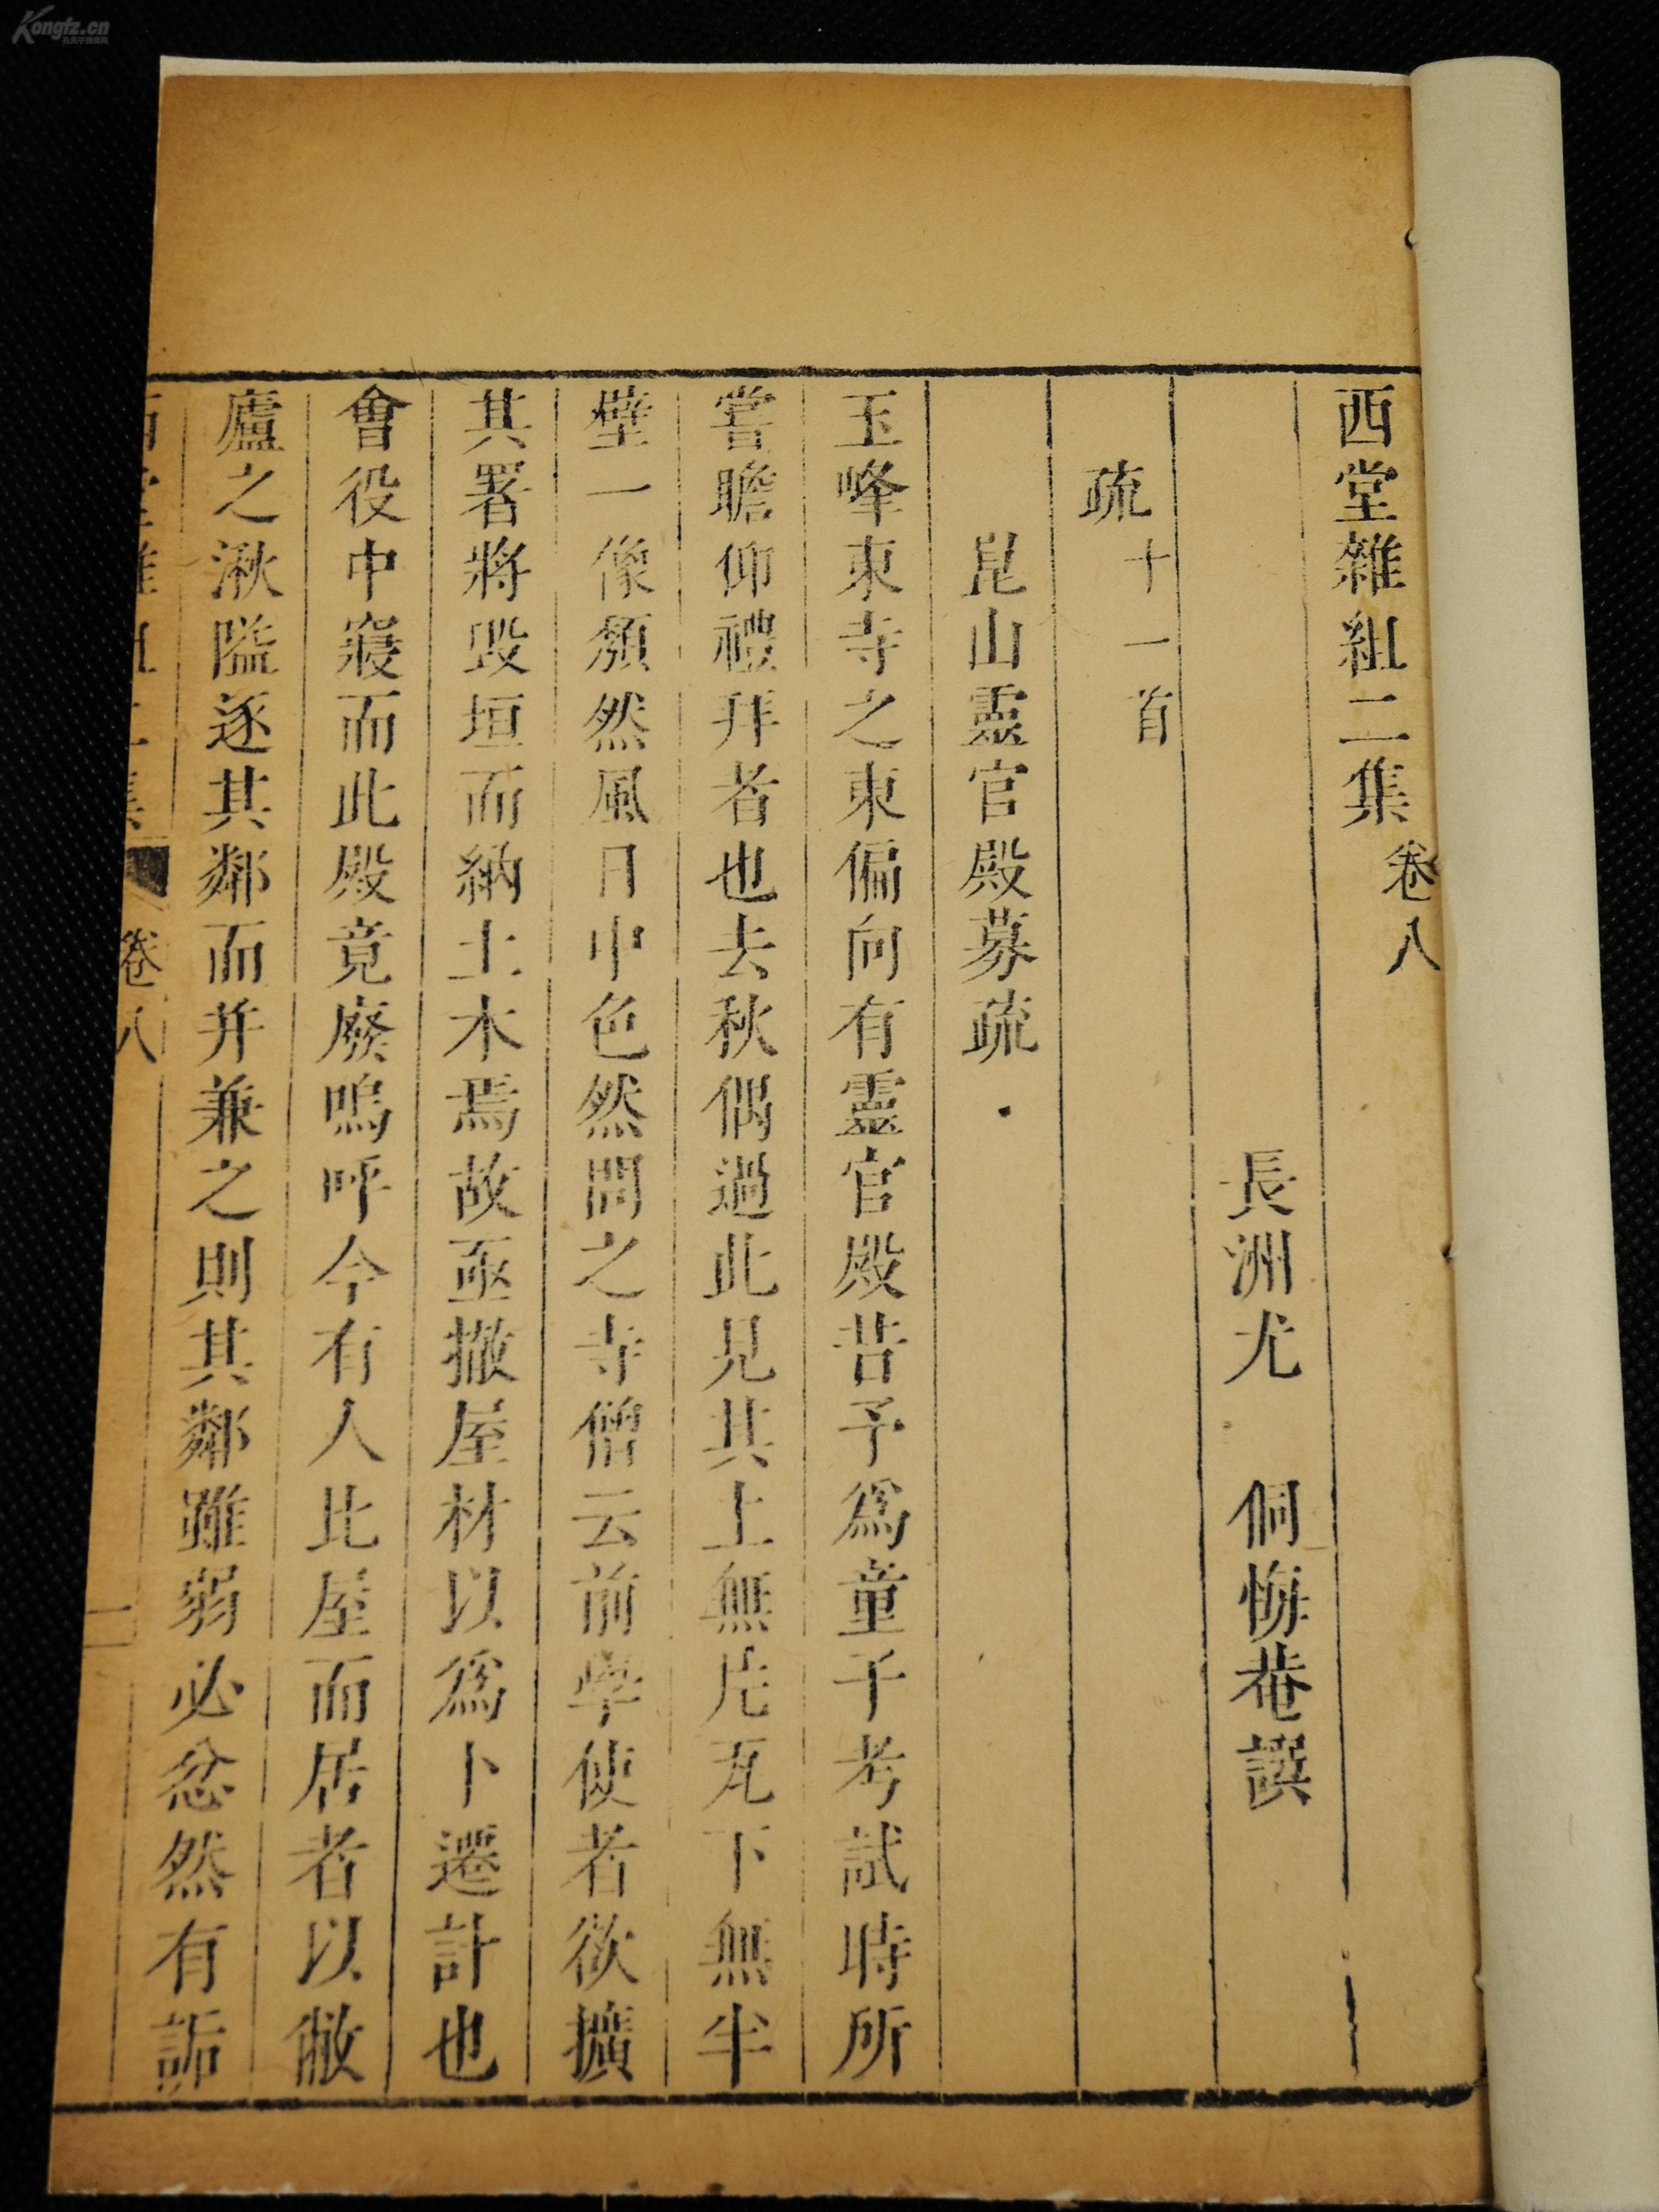 西堂雜組二集卷八
長洲尤侗悔菴譔
疏十一首
崑山靈官殿募疏
玉峰東寺之東偏向有靈官殿昔予爲童子考試時所
嘗瞻仰禮拜者也去秋偶過此見其上無片瓦下無半
壁一像頽然風日中色然問之寺僧云前學使者欲擴
其署將毁垣而納土木焉故亟撤屋材以爲卜遷計也
會役中寢而此殿竟廢嗚呼今有人比屋而居者以敝
廬之湫隘逐其鄰而并兼之則其鄰雖弱必忿然有詬
西堂雜組二集 卷八 一
Kongfz.cn